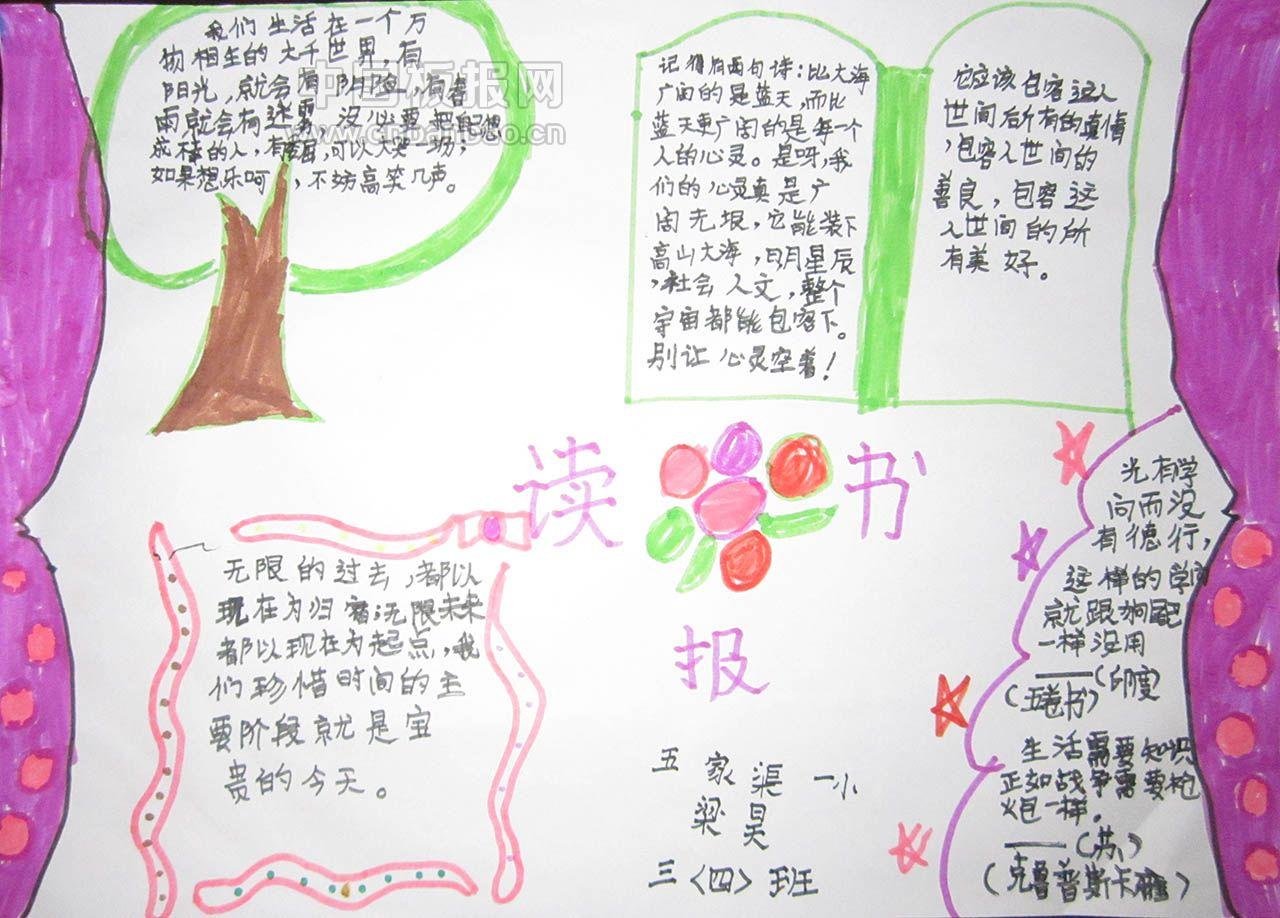 我们生活在一个万
物相生的大千世界,有
阳光,就会有阴险,有春
雨就会有迷雾,没必要把自己想
成棒的人,有委屈,可以大哭一场;
如果想乐呵,不妨高笑几声。
中国板报网
www.cnbanbao.cn
记得有两句诗:比大海
广阔的是蓝天,而比
蓝天更广阔的是每一个
人的心灵。是呀,我
们的心灵真是广
阔无垠,它能装下
高山大海,日月星辰
,社会人文,整个
宇宙都能包容下。
别让心灵空着!
它应该包容这人
世间后所有的真情
,包容人世间的
善良,包容这
人世间的所
有美好。
读书
报
无限的过去,都以
现在为归宿;无限未来
都以现在为起点,我
们珍惜时间的主
要阶段就是宝
贵的今天。
光有学
问而没
有德行,
这样的学
就跟狗屁
一样没用
——(印度)
(五卷书)
生活需要知识
正如战争需要枪
炮一样。
——(苏)
(克鲁普斯卡雅)
五家渠一小
梁昊
三〈四〉班